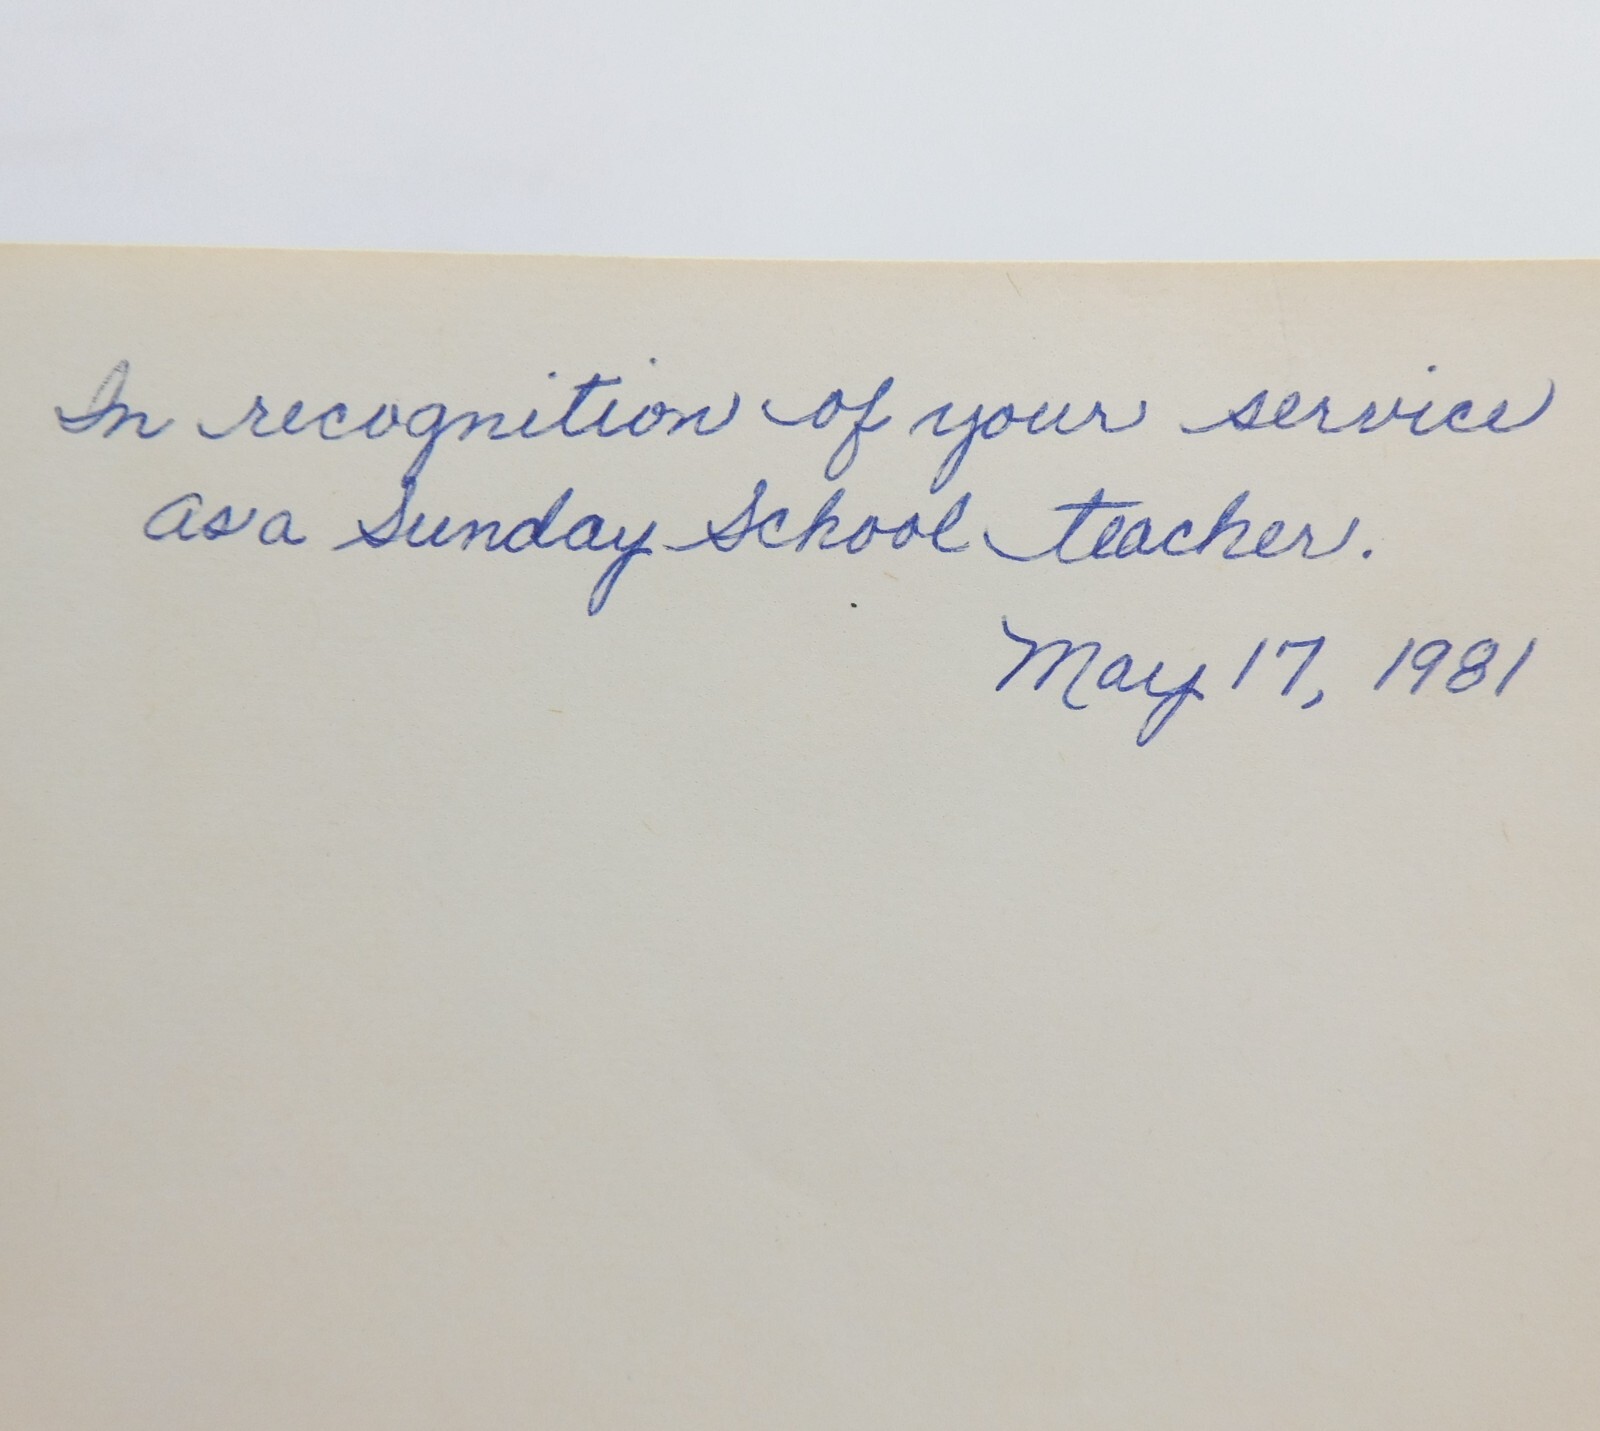 In recognition of your service
as a Sunday School teacher.
May 17, 1981